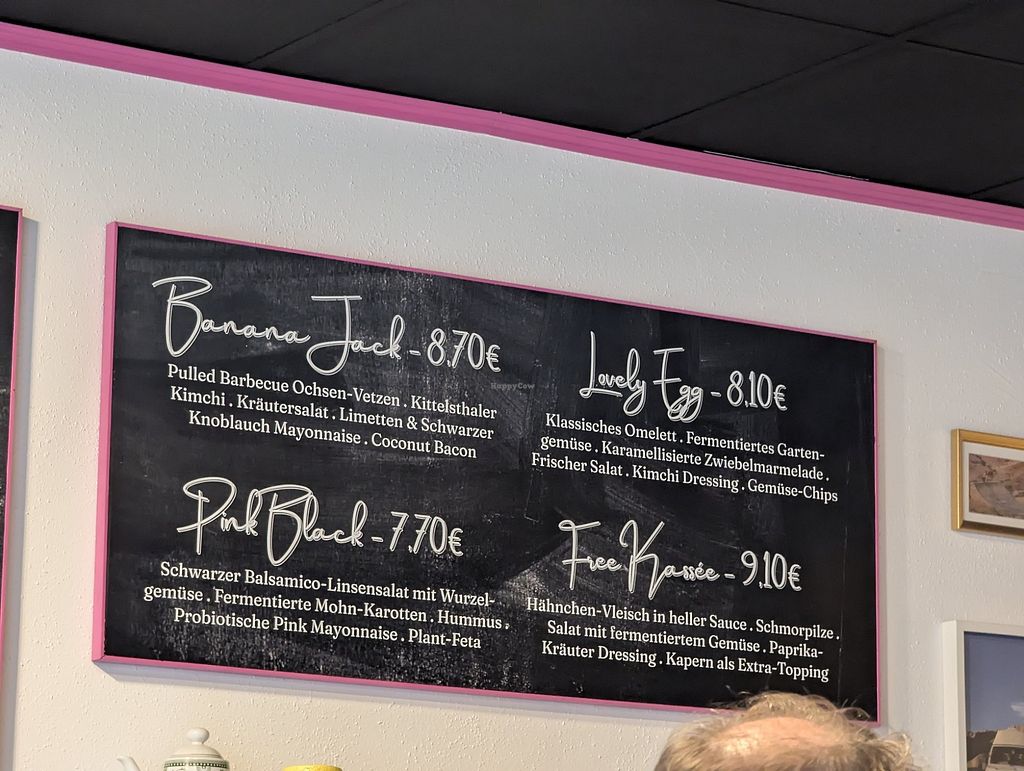 Banana Jack - 8,70€
Pulled Barbecue Ochsen-Vetzen . Kittelsthaler
Kimchi . Kräutersalat . Limetten & Schwarzer
Knoblauch Mayonnaise . Coconut Bacon
Pink Black - 7,70€
Schwarzer Balsamico-Linsensalat mit Wurzel-
gemüse . Fermentierte Mohn-Karotten . Hummus .
Probiotische Pink Mayonnaise . Plant-Feta
Lovely Egg - 8,10€
Klassisches Omelett . Fermentiertes Garten-
gemüse . Karamellisierte Zwiebelmarmelade .
Frischer Salat . Kimchi Dressing . Gemüse-Chips
Free Kassée - 9,10€
Hähnchen-Vleisch in heller Sauce . Schmorpilze .
Salat mit fermentiertem Gemüse . Paprika-
Kräuter Dressing . Kapern als Extra-Topping
HappyCow